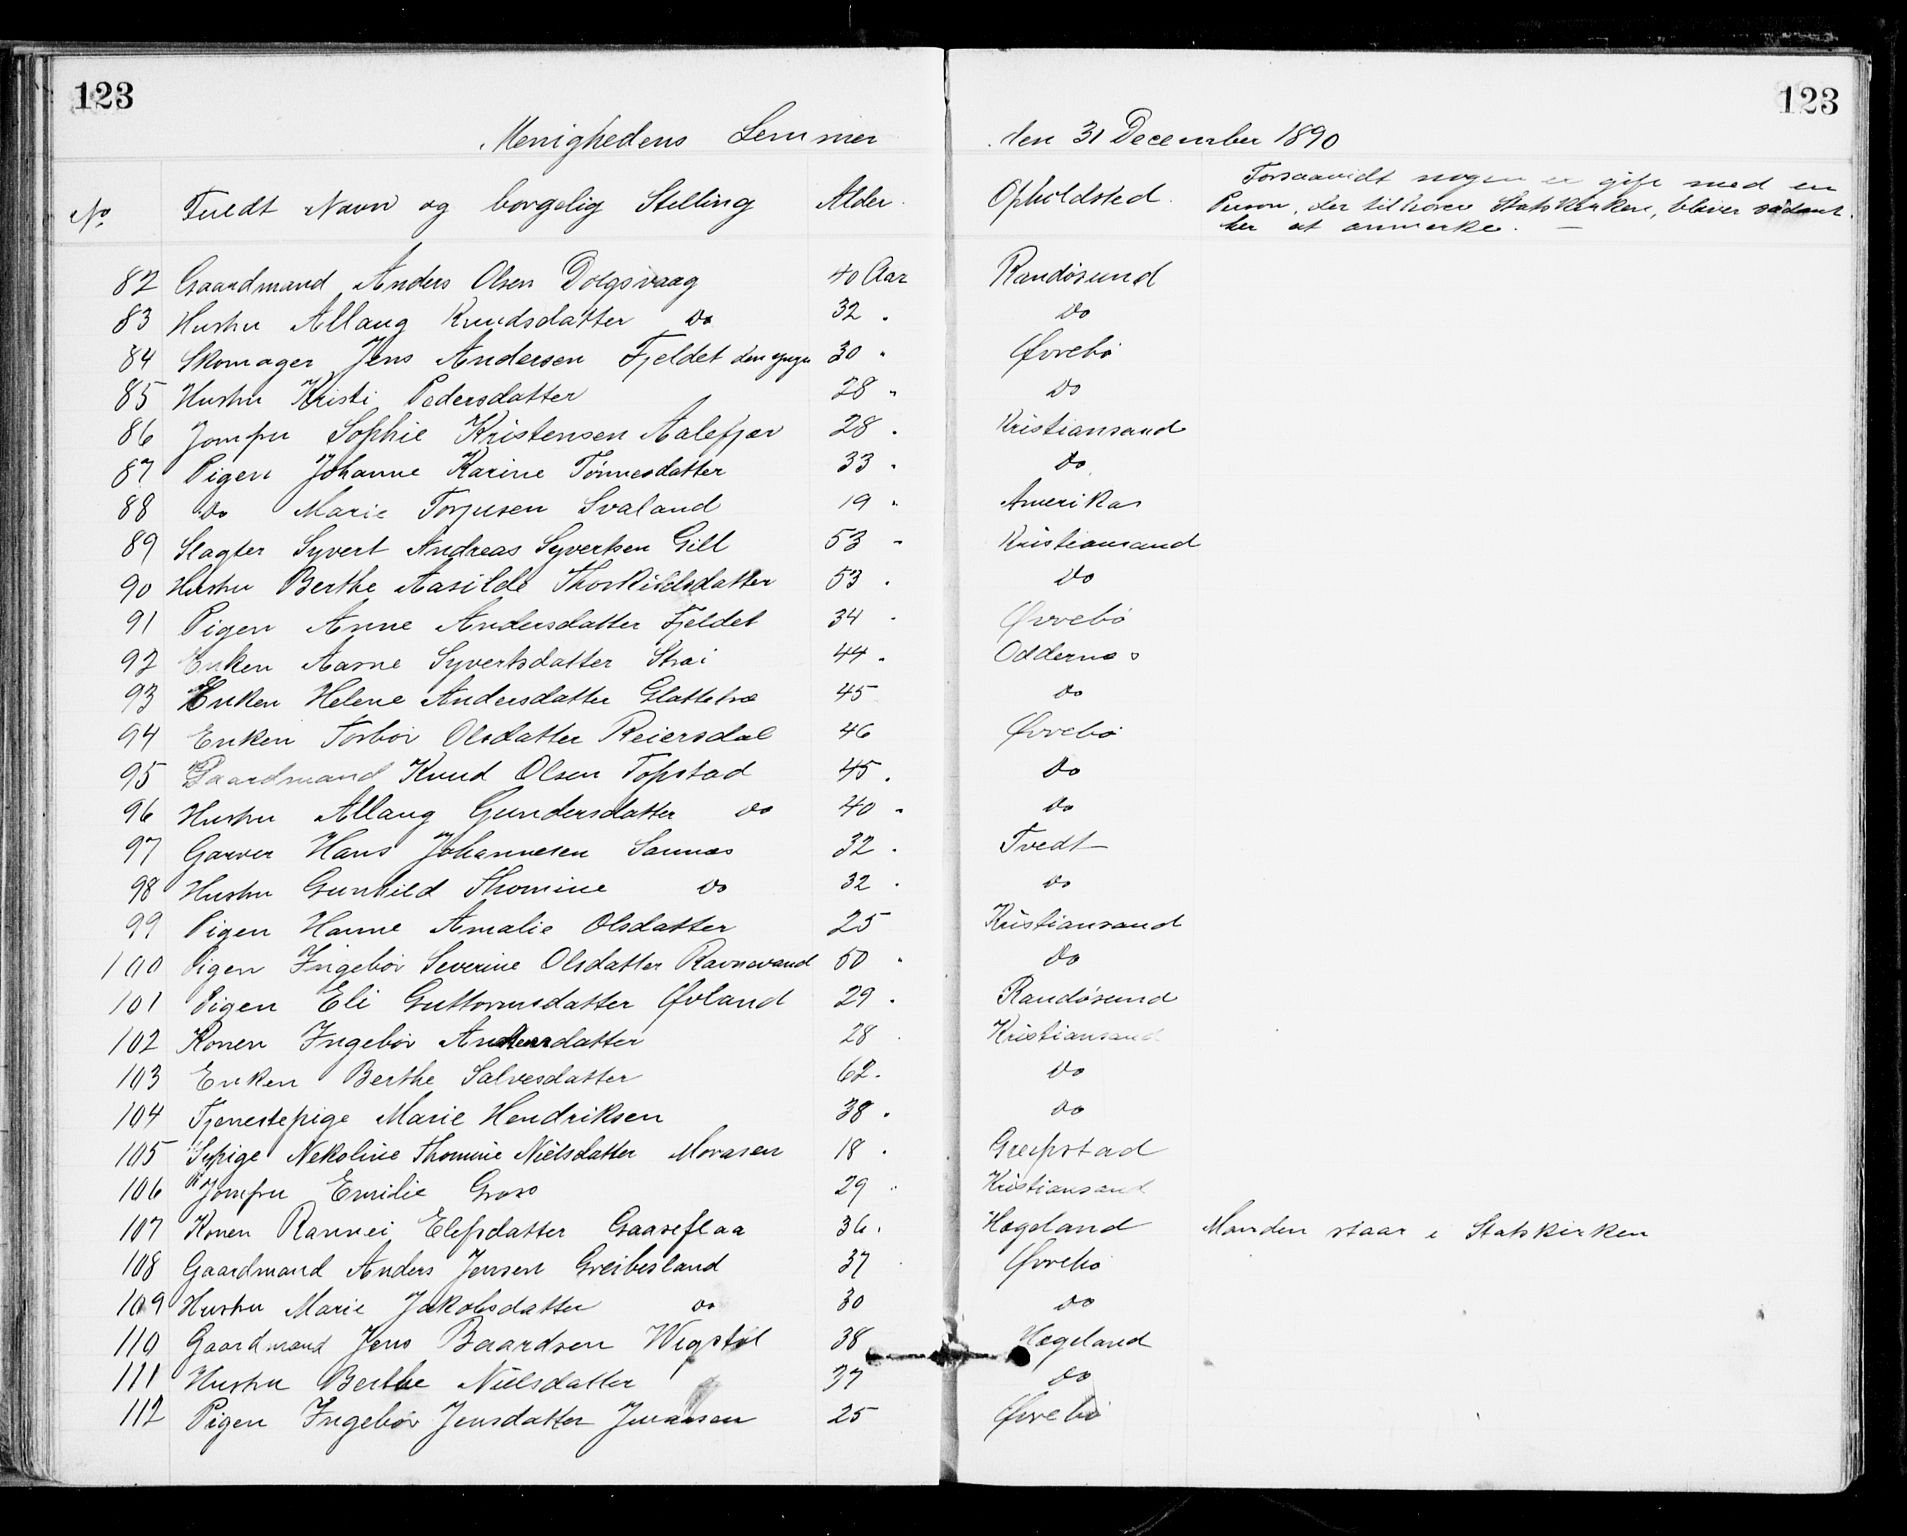 123 123
Menighedens Lemmer den 31 December 1890
No Fuldt Navn og borgelig Stilling Alder. Opholdsted. Forsaavidt nogen er gift med en
Person, der tilhører Statskirken, bliver sådant
her at anmerke. —
82 Gaardmand Anders Olsen Dolgsvaag 40 Aar Randøsund
83 Hustru Allaug Knudsdatter Do 32 " Do
84 Skomager Jens Andersen Fjeldet den yngre 30 " Øvrebø
85 Hustru Kristi Pedersdatter 28 " Do
86 Jomfru Sophie Kristensen Aalefjær 28 " Kristiansand
87 Pigen Johanne Karine Tønnesdatter 33 " Do
88 Do Marie Torjusen Svaland 19 " Amerika
89 Slagter Syvert Andreas Syvertsen Gill 53 " Kristiansand
90 Hustru Berthe Aasilde Thorkildsdatter 53 " Do
91 Pigen Anne Andersdatter Fjeldet 34 " Øvrebø
92 Enken Aasne Syvertsdatter Strai 44 " Oddernes
93 Enken Helene Andersdatter Glattetræ 45 Do
94 Enken Torbør Olsdatter Reiersdal 46 Øvrebø
95 Gaardmand Knud Olsen Topstad 45 " Do
96 Hustru Allaug Gundersdatter Do 40 " Do
97 Garver Hans Johannesen Sannes 32 " Tvedt
98 Hustru Gunhild Thomine Do 32 " Do
99 Pigen Hanne Amalie Olsdatter 25 Kristiansand
100 Pigen Ingebør Severine Olsdatter Ravnevand 50 " Do
101 Pigen Eli Guttormsdatter Øvland 29 " Randøsund
102 Konen Ingebør Andersdatter 28 " Kristiansand
103 Enken Berthe Salvesdatter 62 " Do
104 Tjenestepige Marie Hendriksen 38 " Do
105 Sypige Nekoline Thomine Nielsdatter Morasen 18 " Greipstad
106 Jomfru Emilie Gross 29 " Kristiansand
107 Konen Rannei Elefsdatter Gaaseflaa 36 " Hægeland Manden staar i Statskirken
108 Gaardmand Anders Jensen Greibesland 37 " Øvrebø
109 Hustru Marie Jakobsdatter Do 30 Do
110 Gaardmand Jens Baardsen Wigstøl 38 Hægeland
111 Hustru Berthe Nielsdatter 37 Do
112 Pigen Ingebør Jensdatter 25 Øvrebø